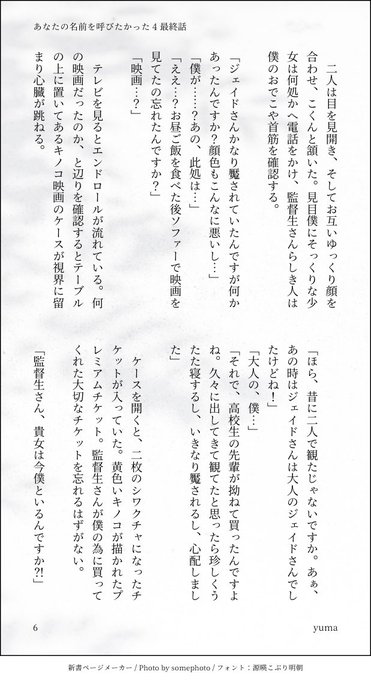 あなたの名前を呼びたかった4最終話
　二人は目を見開き、そしてお互いゆっくり顔を
合わせ、こくんと頷いた。見目僕にそっくりな少
女は何処かへ電話をかけ、監督生さんらしき人は
僕のおでこや首筋を確認する。
「ジェイドさんかなり魘されていたんですが何か
あったんですか？顔色もこんなに悪いし…」
「僕が……？あの、此処は…」
「ええ…？お昼ご飯を食べた後ソファーで映画を
見てたの忘れたんですか？」
「映画…？」
　テレビを見るとエンドロールが流れている。何
の映画だったのか、と辺りを確認するとテーブル
の上に置いてあるキノコ映画のケースが視界に留
まり心臓が跳ねる。
「ほら、昔に二人で観たじゃないですか。あぁ、
あの時はジェイドさんは大人のジェイドさんでし
たけどね！」
「大人の、僕…」
「それで、高校生の先輩が拗ねて買ったんですよ
ね。久々に出してきて観てたと思ったら珍しくう
たた寝するし、いきなり魘されるし、心配しまし
た」
　ケースを開くと、二枚のシワクチャになったチ
ケットが入っていた。黄色いキノコが描かれたプ
レミアムチケット。監督生さんが僕の為に買って
くれた大切なチケットを忘れるはずがない。
「監督生さん、貴女は今僕といるんですか?!」
6
yuma
新書ページメーカー / Photo by somephoto / フォント：源暎こぶり明朝